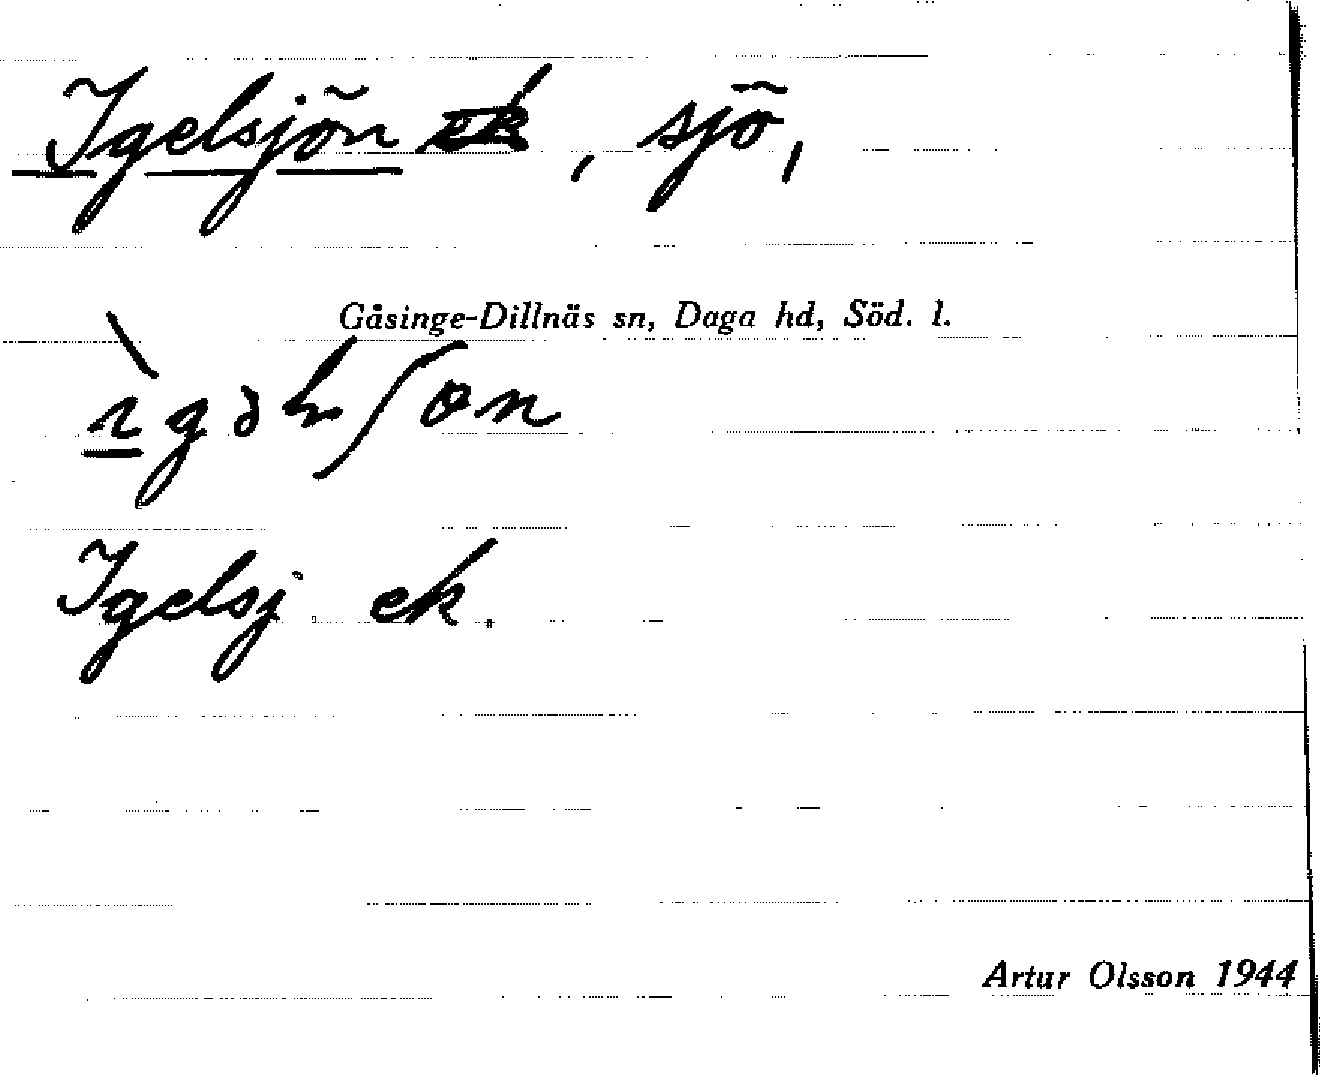 Igelsjön, sjö,
Gåsinge-Dillnäs sn, Daga hd, Söd. l.
Igelsj. ek.
Artur Olsson 1944